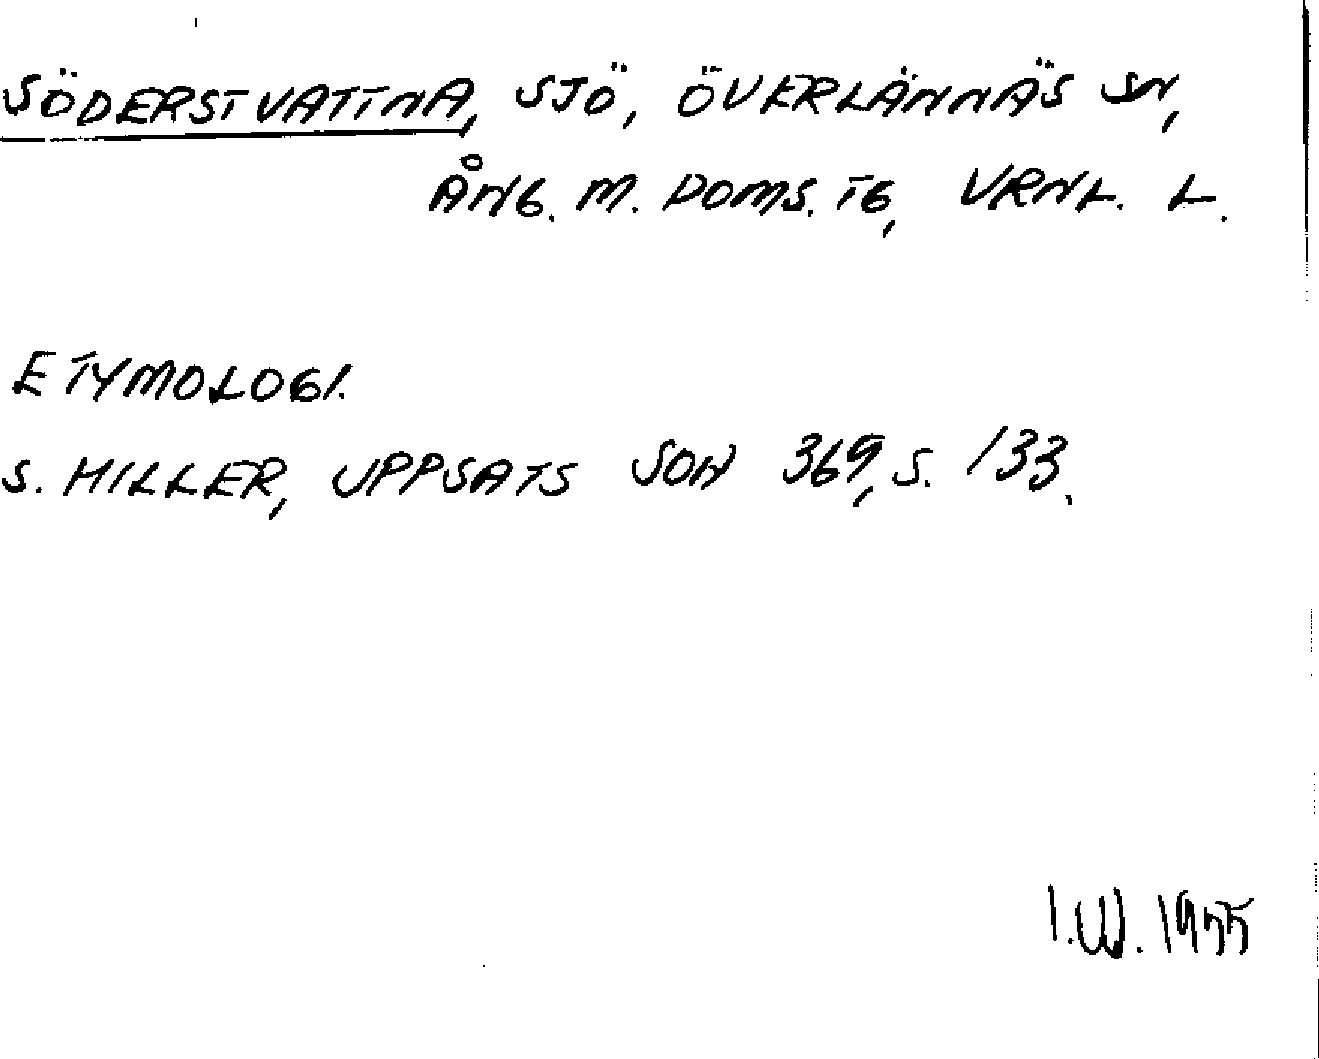 SÖDERSTVATTNA, SJÖ, ÖVERLÄNNÄS SN,
ÅNG. M. DOMS. TG, VRNL. L.
ETYMOLOGI.
S. HILLER, UPPSATS SOH 369, S. 133.
I.W. 1955